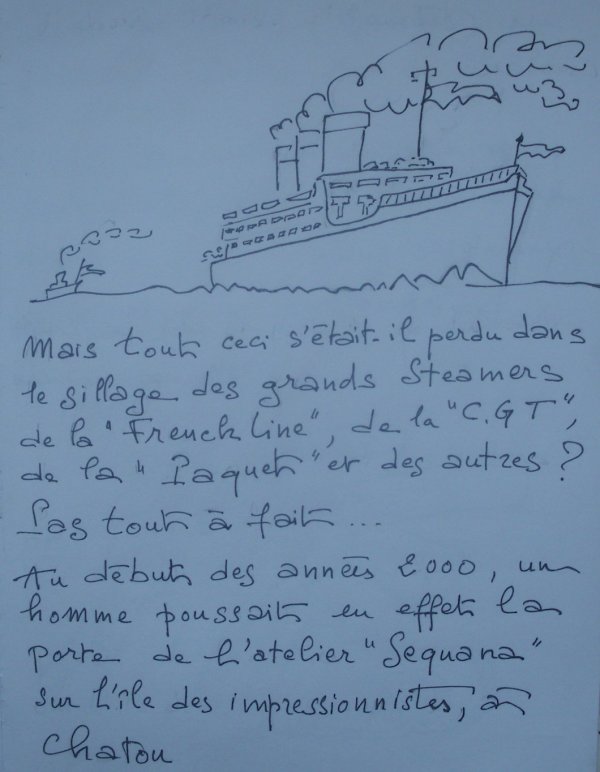 Mais tout ceci s'était-il perdu dans
le sillage des grands Steamers
de la "Frenck Line", de la "C.G.T",
de la "Paquet" et des autres ?
Pas tout à fait ...
Au début des années 2000, un
homme poussait en effet la
porte de l'atelier "Sequana"
sur l'île des impressionnistes, à
Chatou